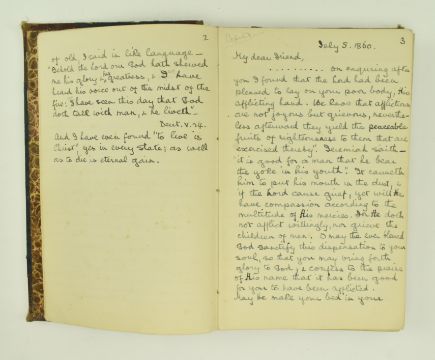 2
of old, I said in like language —
"Behold the Lord our God hath shewed
me his glory & his greatness, & I have
heard his voice out of the midst of the
fire: I have seen this day that God
doth talk with man, & he liveth".
Deut. v. 24.
And I have even found "to live is
Christ", yes in every state; as well
as to die is eternal gain.
3
July 5. 1860.
My dear Friend,
.......... on enquiring after
you I found that the Lord had been
pleased to lay on your poor body, His
afflicting hand. We know that afflictions
are not joyous but grievous, neverthe-
less afterward they yield the peaceable
fruits of righteousness to them that are
exercised thereby". Jeremiah saith —
"it is good for a man that he bear
the yoke in his youth". It causeth
him to put his mouth in the dust, &
if the Lord cause grief, yet will He
have compassion according to the
multitude of His mercies. For He doth
not afflict willingly, nor grieve the
children of men. O may the ever blessed
God sanctify this dispensation to your
soul, so that you may bring forth
glory to God, & confess to the praise
of His name that it has been good
for you to have been afflicted.
May he make your bed in your